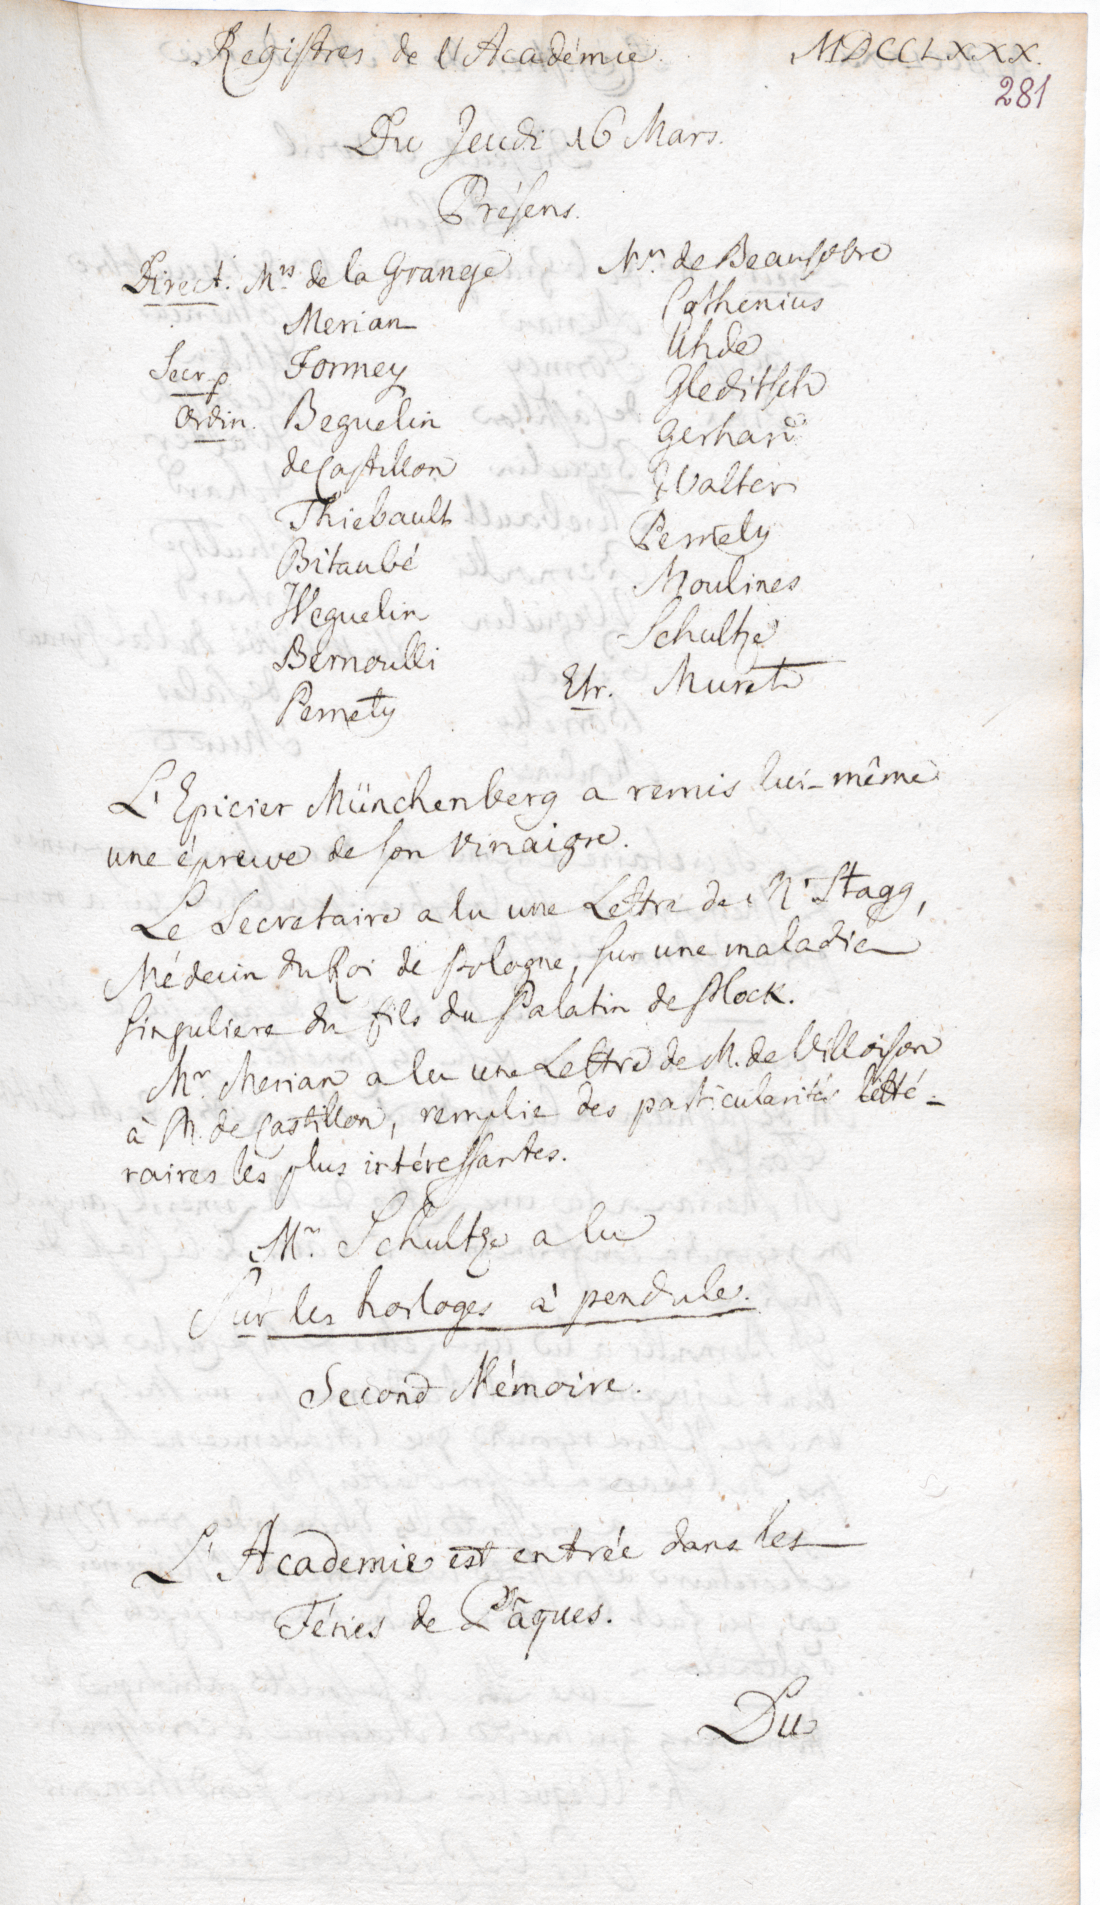 Régistres de l'Académie. MDCCLXXX.
281
Du Jeudi 16 Mars.
Présens.
Direct. Mrs de la Grange
Merian
Secr. p. Formey
Ordin. Beguelin
de Castillon
Thiebault
Bitaubé
Weguelin
Bernoulli
Pernety
Mrs. de Beausobre
Cothenius
Uhde
Gleditsch
Gerhard
Walter
Pernety
Moulines
Schultze
Etr. Muret
L'Epicier Münchenberg a remis lui-même
une épreuve de son vinaigre.
Le Secretaire a lu une Lettre de Mr Stagg,
Médecin du Roi de Pologne, sur une maladie
singuliere du fils du Palatin de Plock.
Mr. Merian a lu une Lettre de M. de Villoison
à M. de Castillon, remplie des particularités litté-
raires les plus intéressantes.
Mr. Schultze a lu
Sur les horloges à pendule.
Second Mémoire.
L'Academie est entrée dans les
Féries de Pâques.
Du